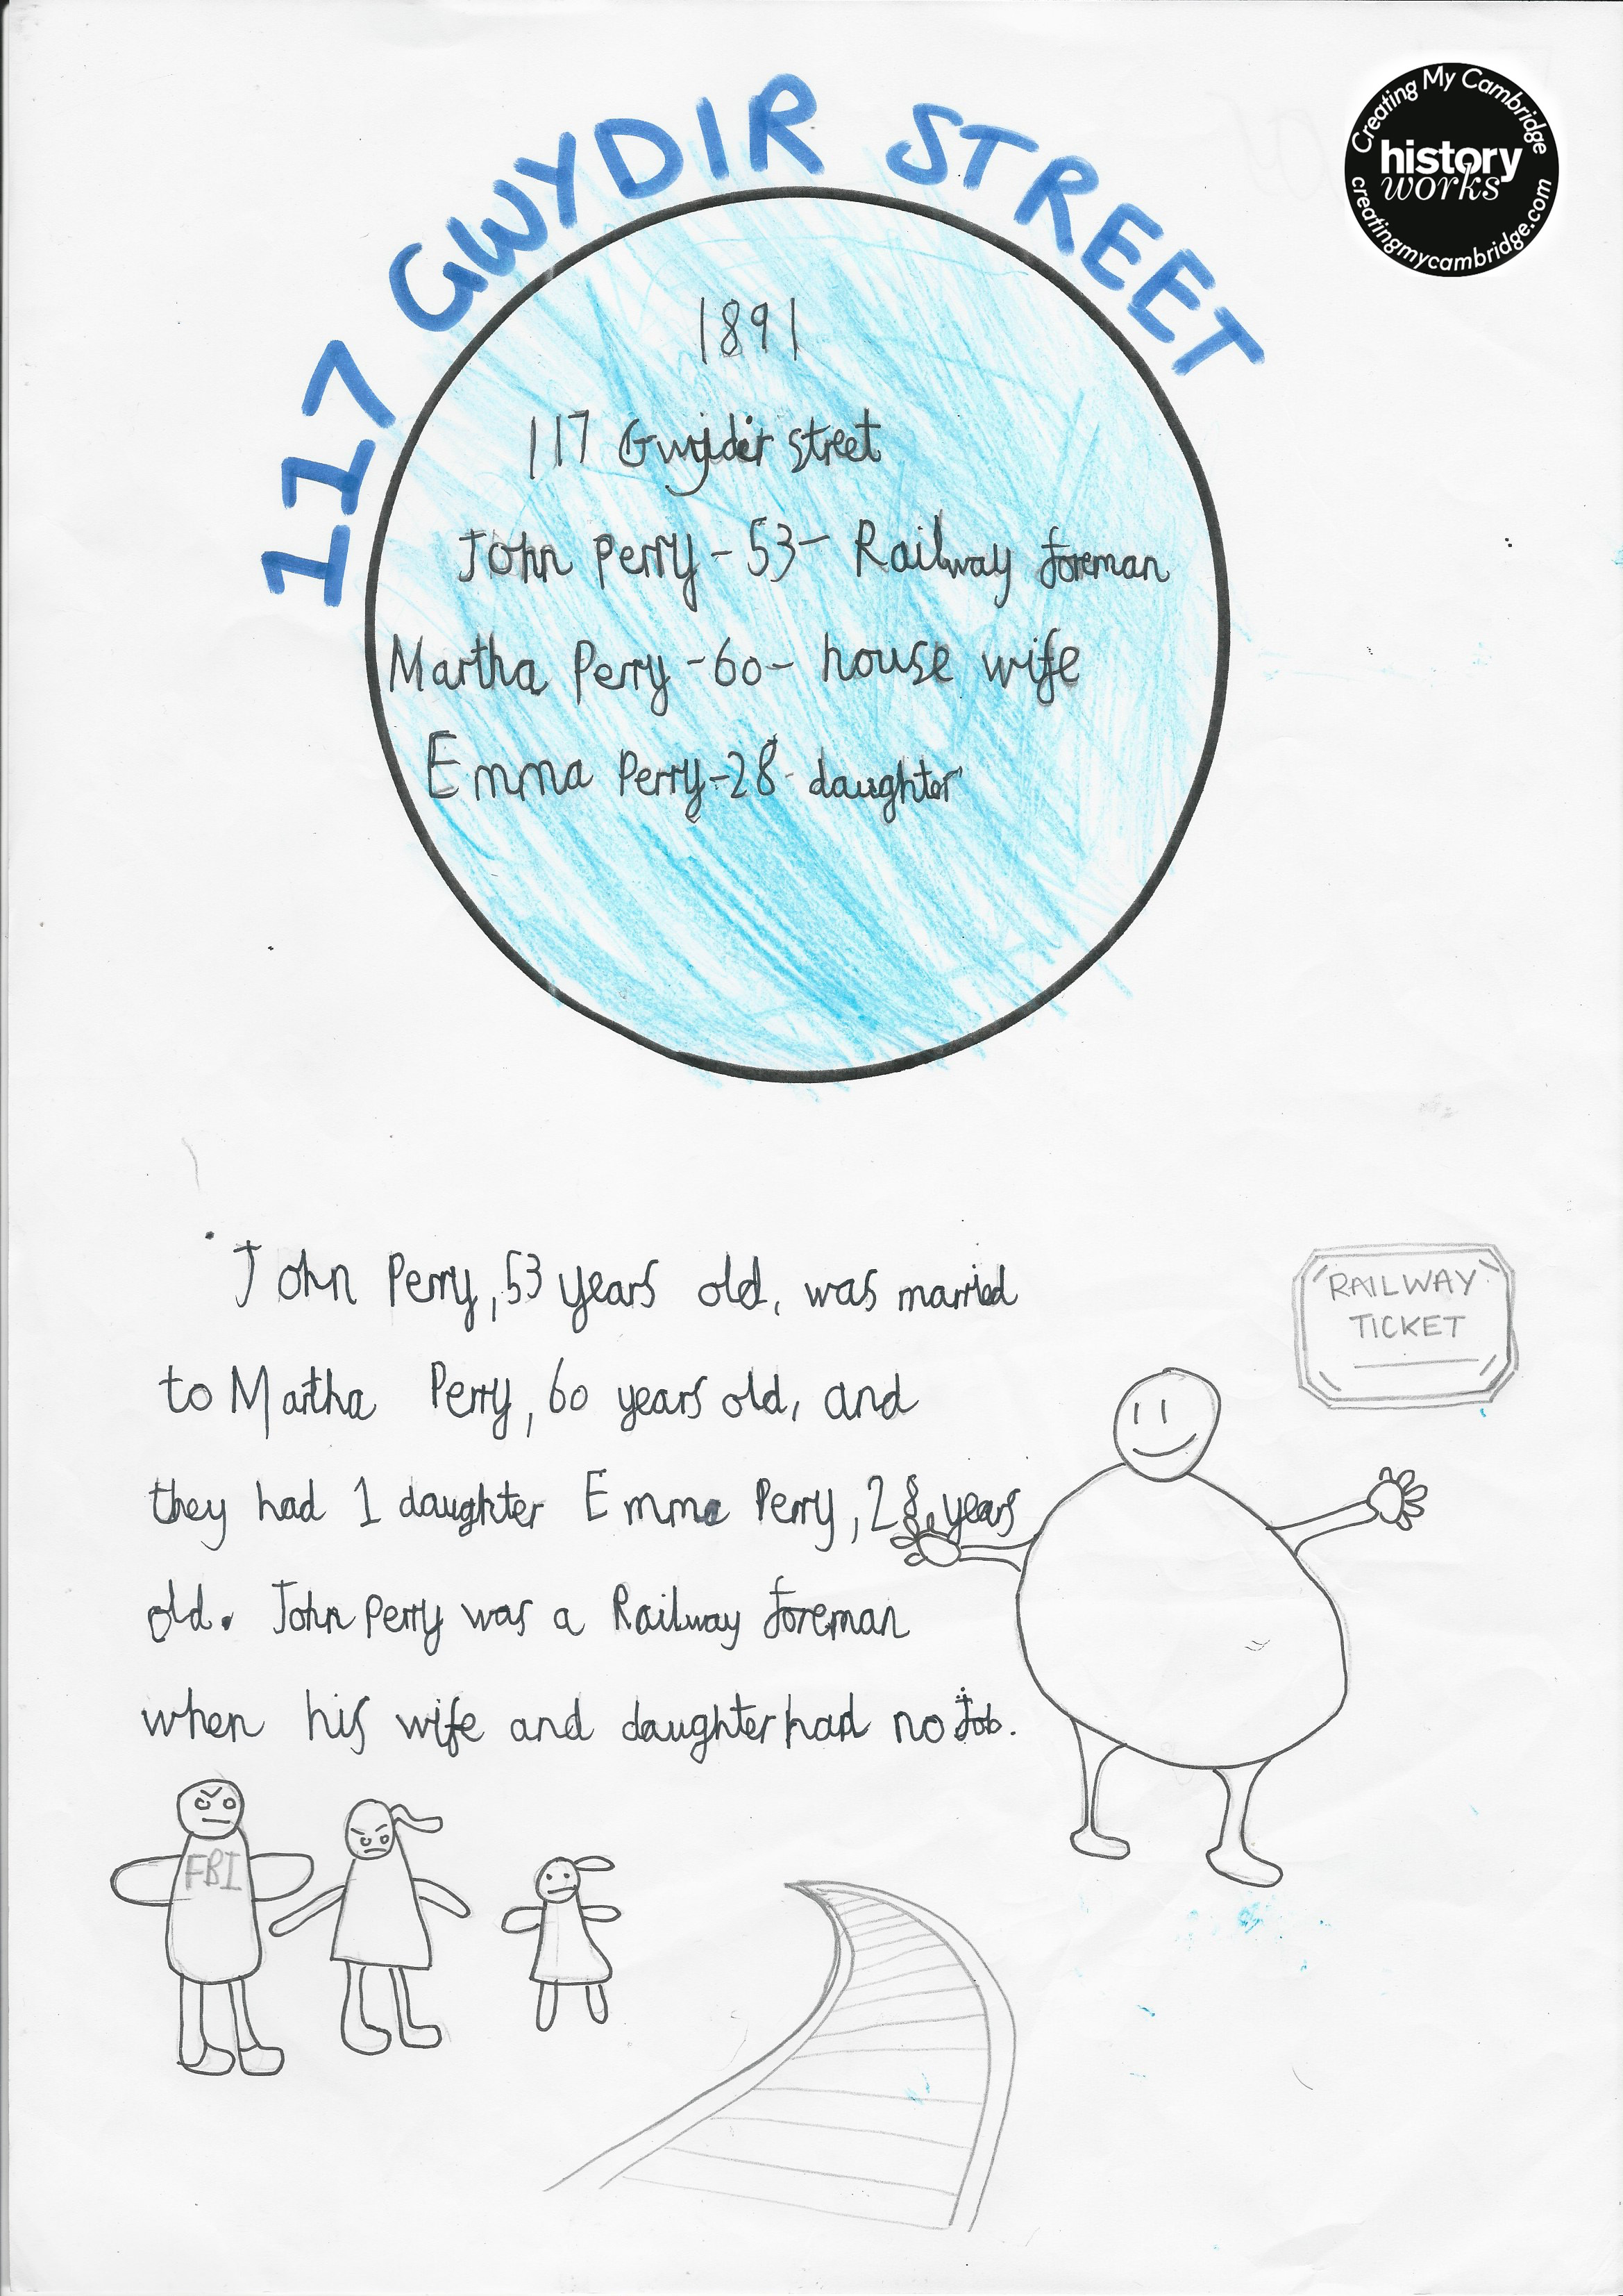 Creating My Cambridge
history
works
creatingmycambridge.com
117 GWYDIR STREET
1891
117 Gwydir street
John Perry - 53 - Railway foreman
Martha Perry - 60 - house wife
Emma Perry - 28 - daughter
John Perry, 53 years old, was married
to Martha Perry, 60 years old, and
they had 1 daughter Emma Perry, 28, years
old. John Perry was a Railway foreman
when his wife and daughter had no Job.
RAILWAY
TICKET
FBI